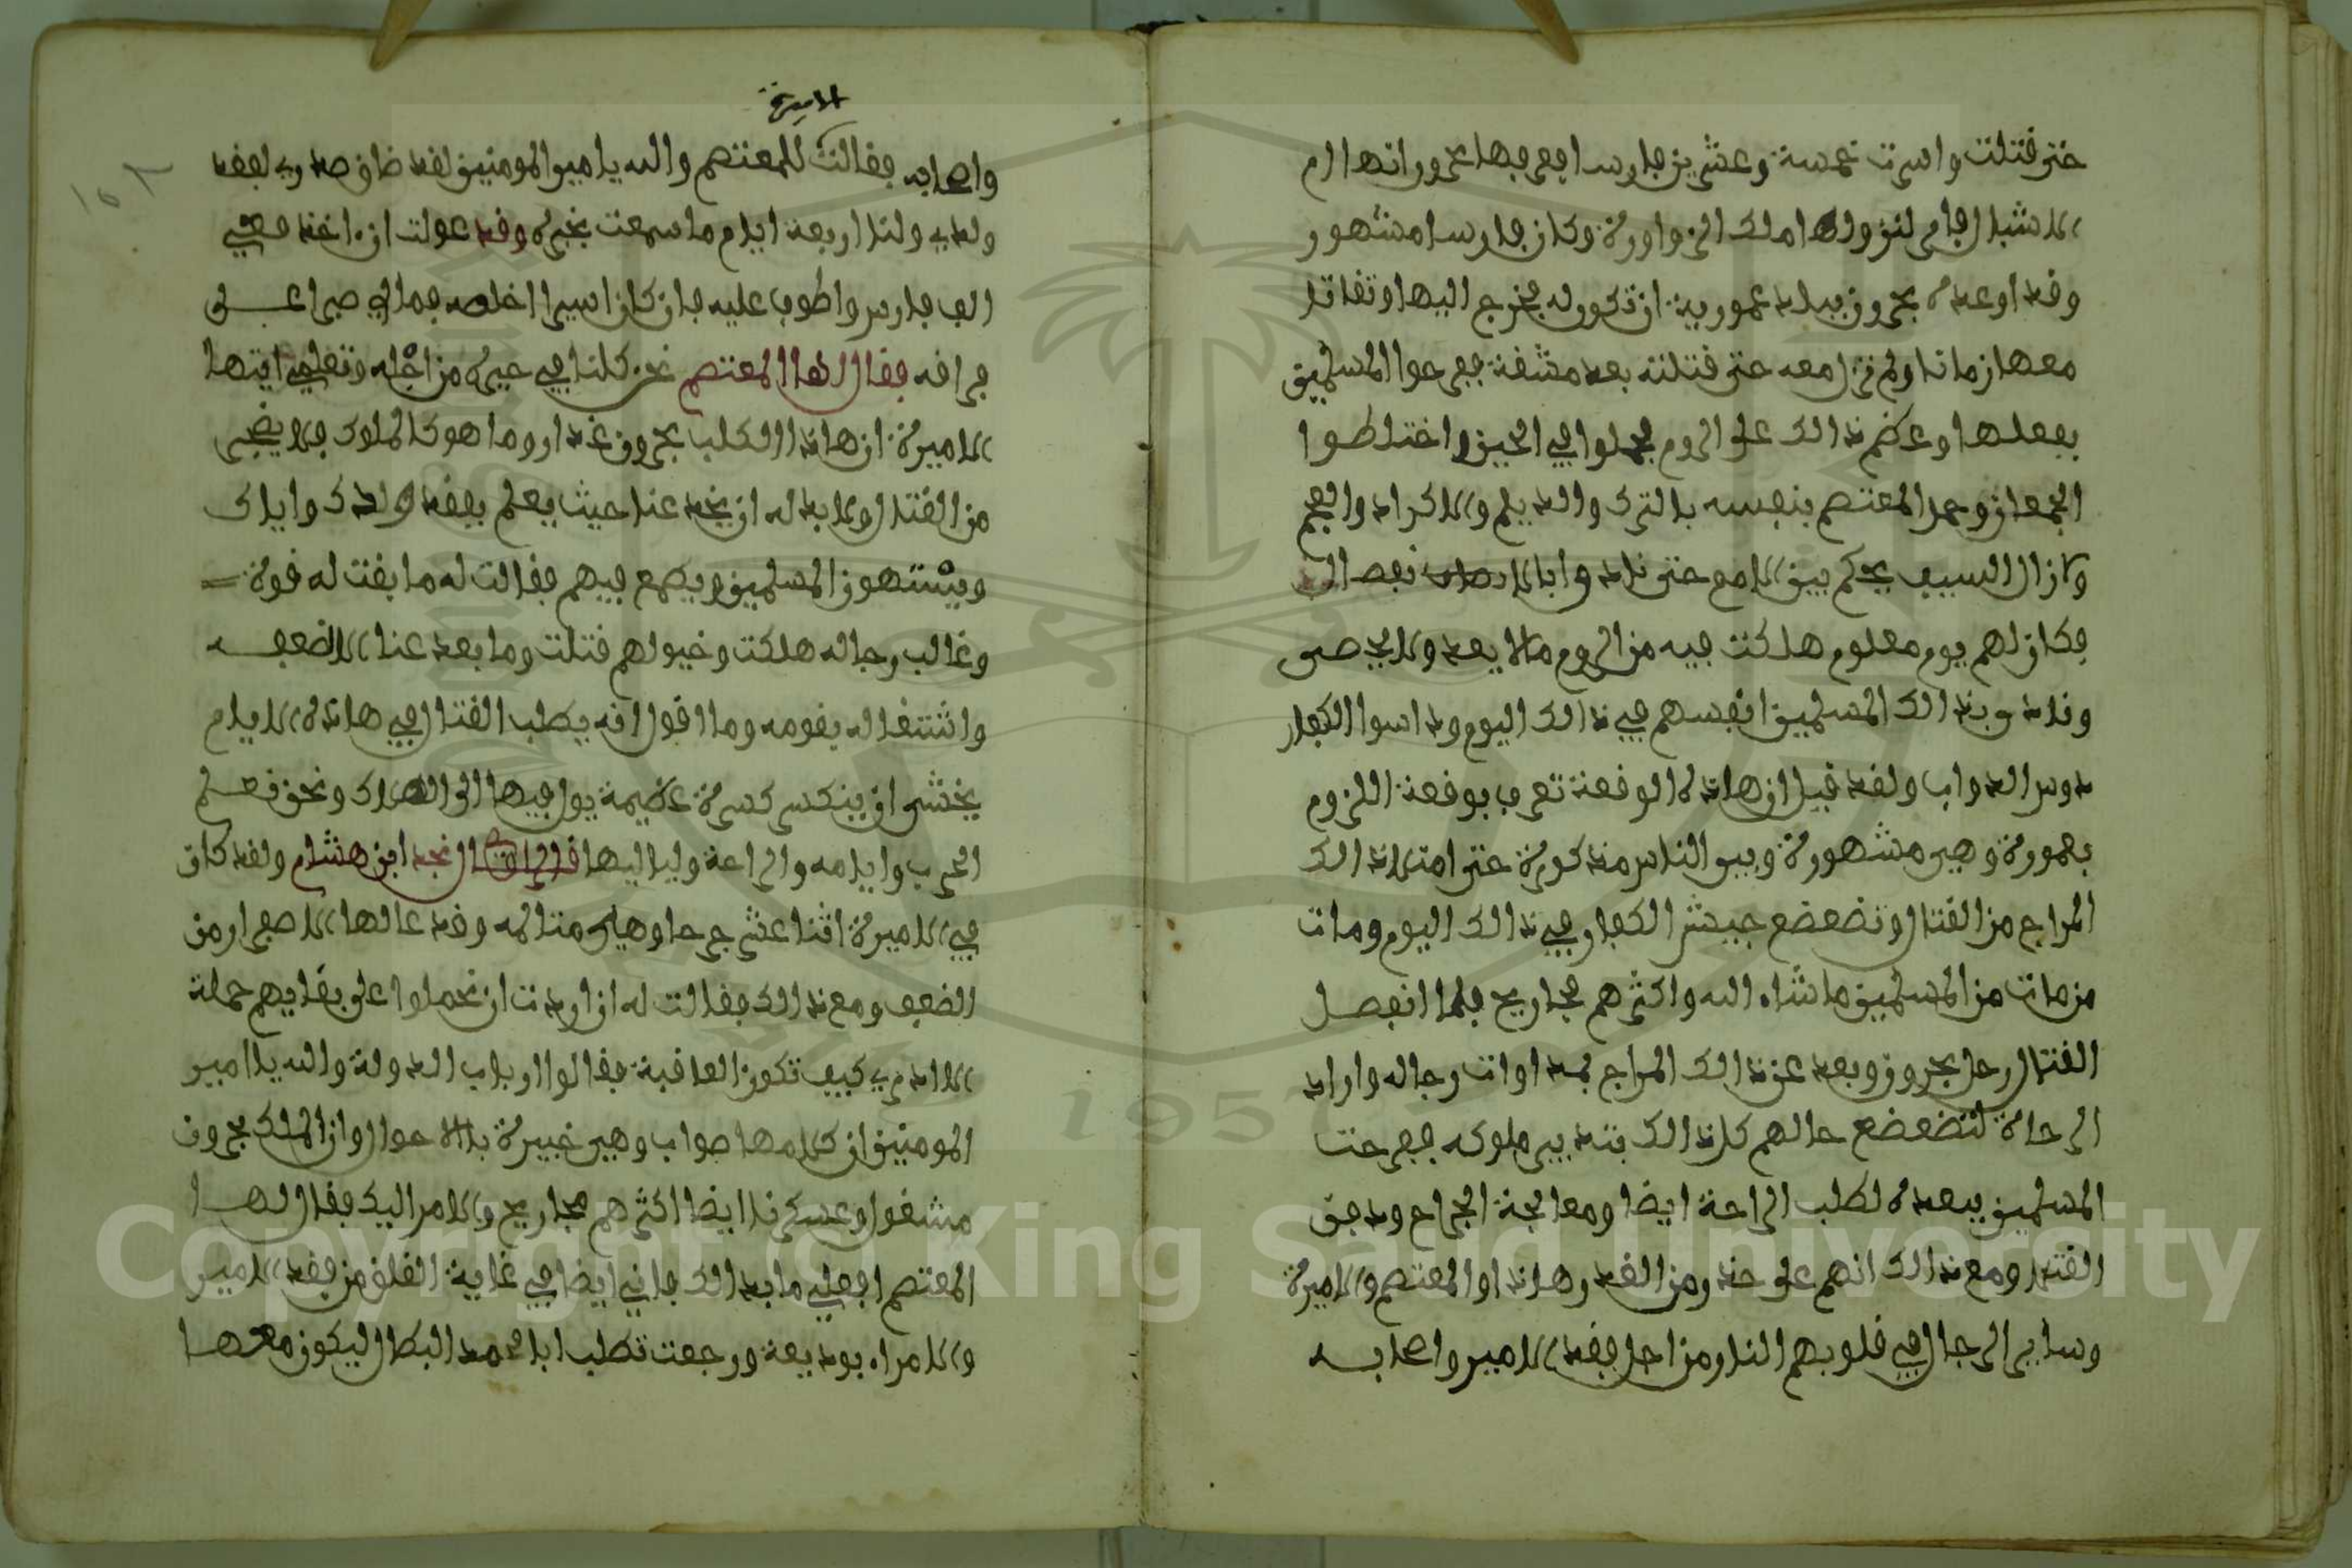 حتى قتلت واسرت خمسة وعشرين فارسا فعرفها بحرون انها ام
الاشبال فامر لنزولها ملك الزواورة وكان فارسا مشهور
وقد اوعده بحرون ببلاد عمورية ان تكون له فخرج اليها وتقاتل
معها زمانا ولم تزل معه حتى قتلته بعد مشقة ففرحوا المسلمين
بفعلها وعظم ذالك على الروم فحملوا في الحين واختلطوا
الجمعان وحمل المعتصم بنفسه بالترك والديلم والاكراد والعجم
ولا زال السيف يحكم بين الامم حتى
فكان لهم يوم معلوم هلكت فيه من الروم مالا يعد ولا يحصى
ذالك المسلمين انفسهم في ذالك اليوم وداسوا الكفار
دوس الدواب ولقد قيل ان هاذه الوقعة تعرف بوقعة اللزوم
بعمورة وهي مشهورة وبين الناس مذكورة حتى امتلا ذالك
المراج من القتال وتضعضع جيش الكفار في ذالك اليوم ومات
من مات من المسلمين ما شاء الله واكثرهم مجاريح فلما انفصل
القتال رحل بحرون وبعد عن ذالك المراج لمداوات رجاله واراد
الراحة لتضعضع حالهم كل ذالك بتدبير ملوكه ففرحت
المسلمين ببعده لطلب الراحة ايضا ومعالجة الجراح ودفن
القتلى ومع ذالك انهم على حذر من الغدر وهاذا والمعتصم والاميرة
وساير الرجال في قلوبهم النار من اجل فقد الامير واصحابه
الاميرة
واصحابه فقالت للمعتصم والله يامير المومنين لقد ضاق صدري لفقد
ولدي ولنا اربعة ايام ما سمعت بخبره وقد عولت ان اخذ معي
الف فارس واطوف عليه فان كان اسيرا اخلصه فمالي صبرا على
فراقه فقال لها المعتصم نحن كلنا في حيرة من اجله وتعلمي ايتها
الاميرة ان هاذا الكلب بحرون غدار وما هو كالملوك فلا يضجر
من القتال ولا بد له ان يخبر عنا حيث يعلم بفقد ولدك واياك
ويستهون المسلمين ويطمع فيهم فقالت له ما بقت له قوة
وغالب رجاله هلكت وخيولهم قتلت وما بعد عنا الا لضعفه
واشتغاله بقومه وما اقول انه يطلب القتال في هاذه الايام
يخشى ان ينكسر كسرة عظيمة يول فيها الى الهلاك ونحن نعلم
الحرب وايامه والراعة ولياليها قال الراوي نجد ابن هشام ولقد كان
في الاميرة اثنا عشر جرحا وهي متالمه وقد عالها الاصفرار من
الضعف ومع ذالك فقالت له ان اردت ان نحملوا على بقايهم حملة
الا ادري كيف تكون العاقبة فقالوا ارباب الدولة والله يا امير
المومنين ان كلامها صواب وهي خبيرة بالاحوال وان الملك بحرون
مشغول وعسكرنا ايضا اكثرهم مجاريح والامر اليك فقال لها
المعتصم افعلي ما بدالك فاني ايضا في غاية القلق من فقد الامير
والامراء بوديعة ورجعت تطلب ابا محمد البطال ليكون معها